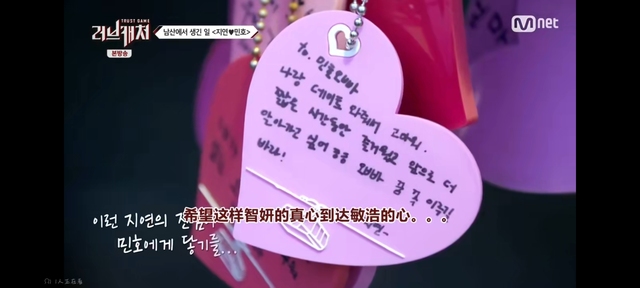 TRUST GAME
러브캐처
본방송
남산에서 생긴 일 <지연♥민호>
Mnet
To. 민호오빠
나랑 데이트 와줘서 고마워.
짧은 시간동안 즐거웠고 앞으로 더
알아가고 싶어 ㅎㅎ 오빠 꿈 꼭 이루길
바라!
이런 지연의
민호에게 닿기를...
希望这样智妍的真心到达敏浩的心。。。